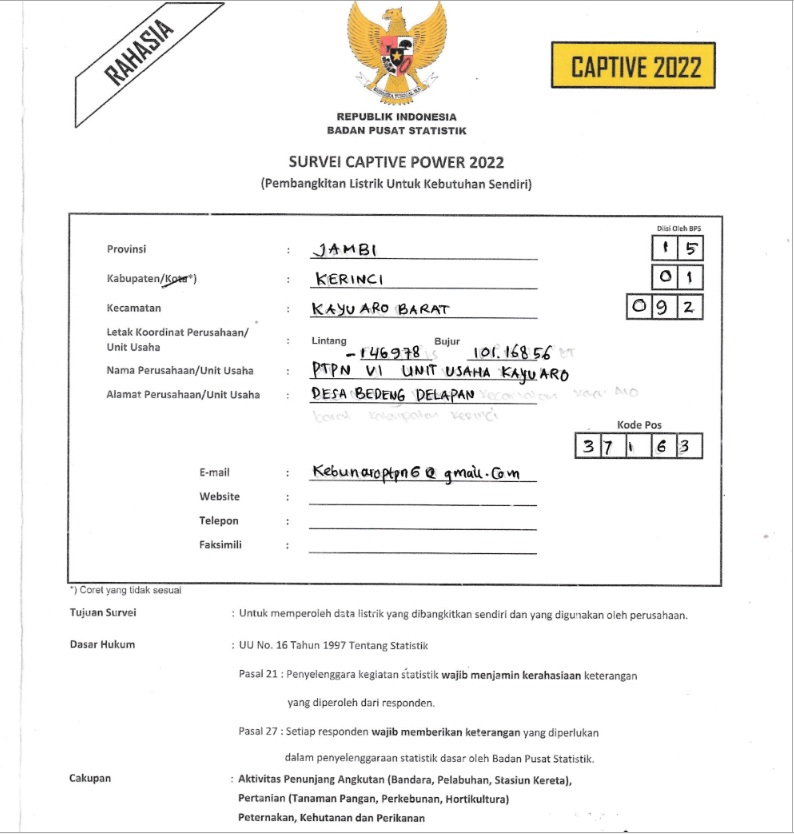 RAHASIA
CAPTIVE 2022
REPUBLIK INDONESIA
BADAN PUSAT STATISTIK
SURVEI CAPTIVE POWER 2022
(Pembangkitan Listrik Untuk Kebutuhan Sendiri)
Diisi Oleh BPS
Provinsi : JAMBI 1 5
Kabupaten/Kota*) : KERINCI 0 1
Kecamatan : KAYU ARO BARAT 0 9 2
Letak Koordinat Perusahaan/
Unit Usaha : Lintang -146978 Bujur 101.16856
Nama Perusahaan/Unit Usaha : PTPN VI UNIT USAHA KAYU ARO
Alamat Perusahaan/Unit Usaha : DESA BEDENG DELAPAN
Kode Pos
3 7 1 6 3
E-mail : Kebunaroptpn6@gmail.com
Website :
Telepon :
Faksimili :
*) Coret yang tidak sesuai
Tujuan Survei : Untuk memperoleh data listrik yang dibangkitkan sendiri dan yang digunakan oleh perusahaan.
Dasar Hukum : UU No. 16 Tahun 1997 Tentang Statistik
Pasal 21 : Penyelenggara kegiatan statistik wajib menjamin kerahasiaan keterangan
yang diperoleh dari responden.
Pasal 27 : Setiap responden wajib memberikan keterangan yang diperlukan
dalam penyelenggaraan statistik dasar oleh Badan Pusat Statistik.
Cakupan : Aktivitas Penunjang Angkutan (Bandara, Pelabuhan, Stasiun Kereta),
Pertanian (Tanaman Pangan, Perkebunan, Hortikultura)
Peternakan, Kehutanan dan Perikanan